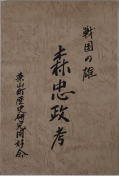 戦国の雄
森忠政考
兼山町歴史研究同好会